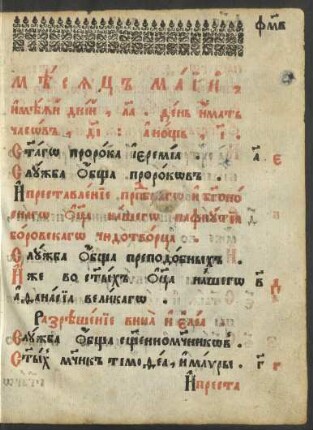 фмв
мѣсяцъ маїй,
имѣяй днїй, ла. день имать
часовъ, ді: а нощь, і.
Ст҃аго пророка іереміа а҃
Служба обща пророковъ.
И преставленїе прпⷣбнаго и бг҃оно
снагѡ ѻц҃а нашегѡ пафнутїа
боровскагѡ чюдотворца.
Служба обща преподобныхъ.
Иже во ст҃ыхъ ѻц҃а нашегѡ в҃
аѳанасїа великагѡ.
Разрѣшенїе вина и елеа
Служба обща сщ҃енномч҃никѡвъ.
Ст҃ыхъ мч҃никъ тимоѳеа, и мауры. г҃
И преста